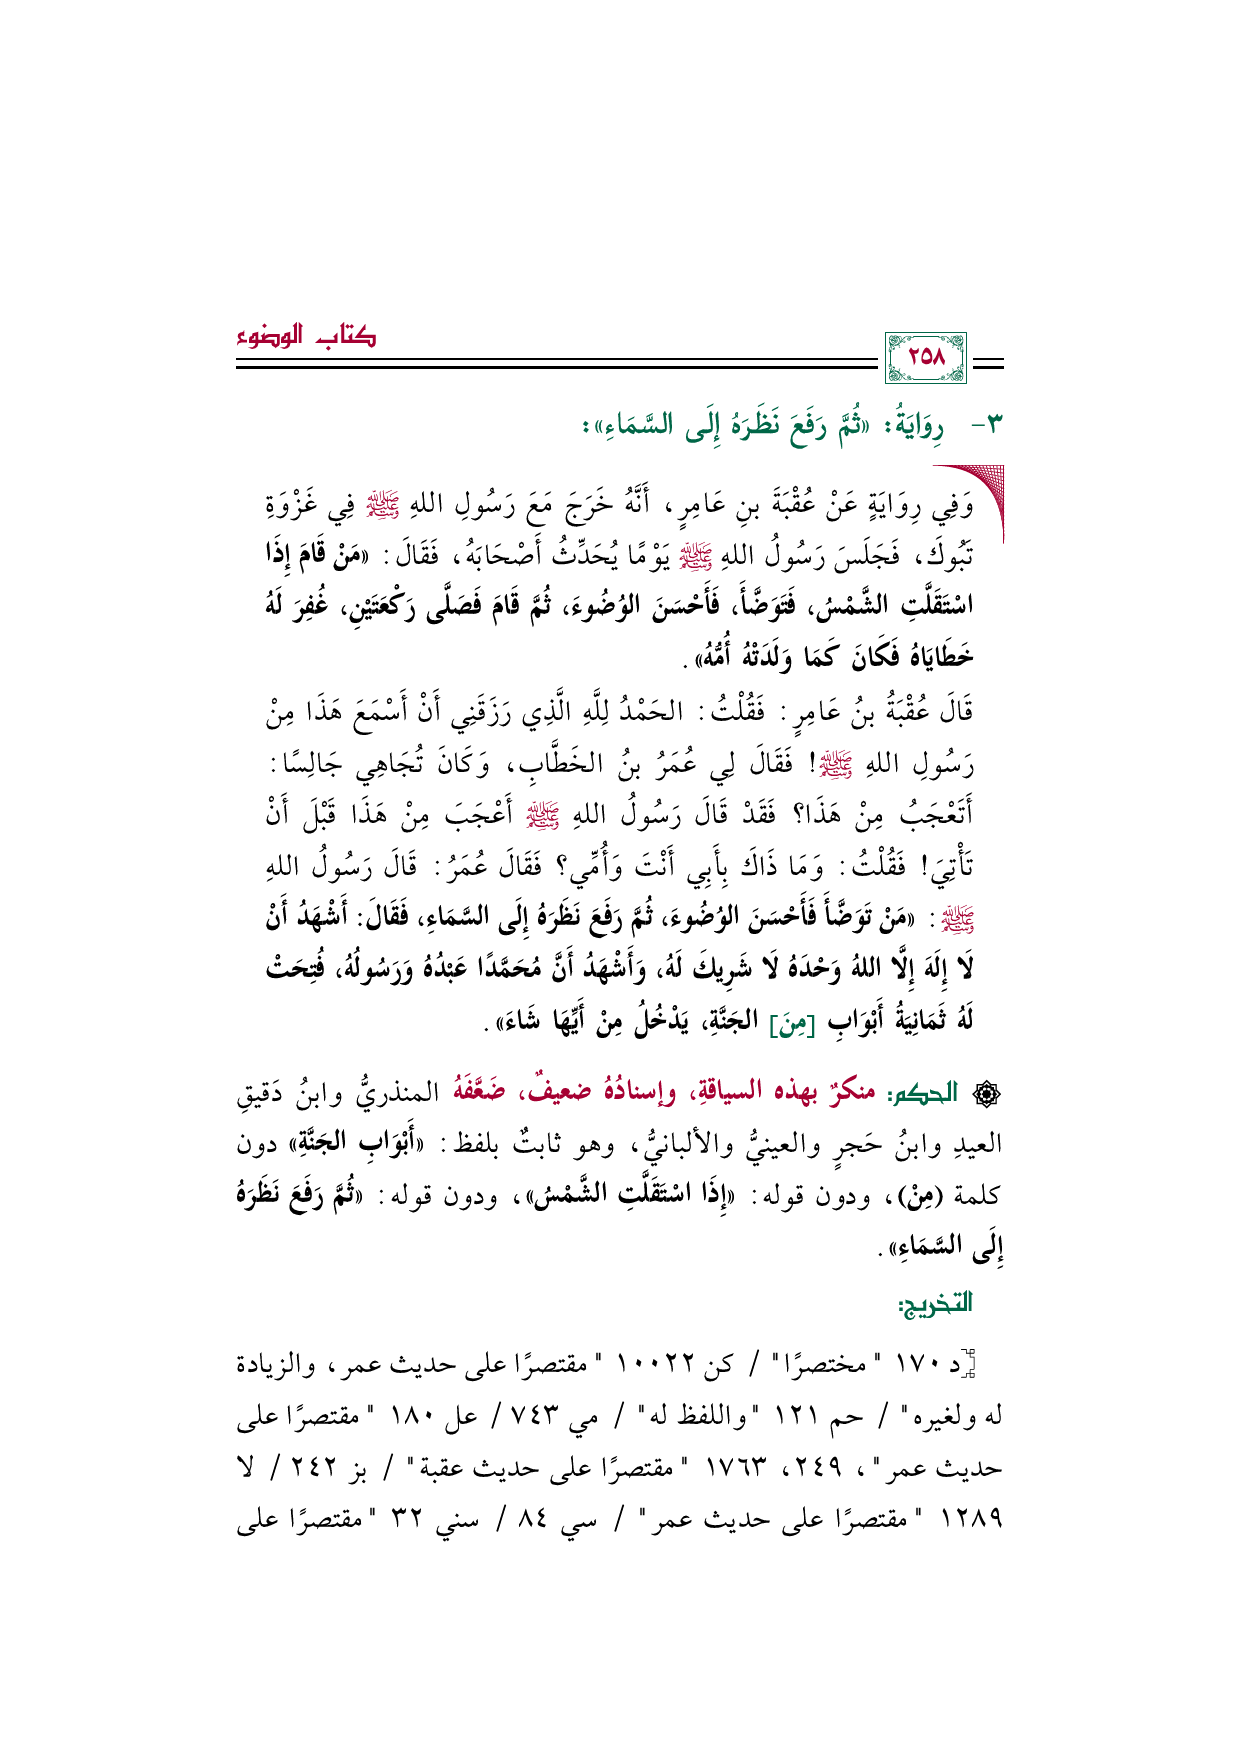 كتاب الوضوء
٢٥٨
٣- رِوَايَةُ: «ثُمَّ رَفَعَ نَظَرَهُ إِلَى السَّمَاءِ»:
وَفِي رِوَايَةٍ عَنْ عُقْبَةَ بنِ عَامِرٍ، أَنَّهُ خَرَجَ مَعَ رَسُولِ اللهِ ﷺ فِي غَزْوَةِ
تَبُوكَ، فَجَلَسَ رَسُولُ اللهِ ﷺ يَوْمًا يُحَدِّثُ أَصْحَابَهُ، فَقَالَ: «مَنْ قَامَ إِذَا
اسْتَقَلَّتِ الشَّمْسُ، فَتَوَضَّأَ، فَأَحْسَنَ الوُضُوءَ، ثُمَّ قَامَ فَصَلَّى رَكْعَتَيْنِ، غُفِرَ لَهُ
خَطَايَاهُ فَكَانَ كَمَا وَلَدَتْهُ أُمُّهُ».
قَالَ عُقْبَةُ بنُ عَامِرٍ: فَقُلْتُ: الحَمْدُ لِلَّهِ الَّذِي رَزَقَنِي أَنْ أَسْمَعَ هَذَا مِنْ
رَسُولِ اللهِ ﷺ! فَقَالَ لِي عُمَرُ بنُ الخَطَّابِ، وَكَانَ تُجَاهِي جَالِسًا:
أَتَعْجَبُ مِنْ هَذَا؟ فَقَدْ قَالَ رَسُولُ اللهِ ﷺ أَعْجَبَ مِنْ هَذَا قَبْلَ أَنْ
تَأْتِيَ! فَقُلْتُ: وَمَا ذَاكَ بِأَبِي أَنْتَ وَأُمِّي؟ فَقَالَ عُمَرُ: قَالَ رَسُولُ اللهِ
ﷺ: «مَنْ تَوَضَّأَ فَأَحْسَنَ الوُضُوءَ، ثُمَّ رَفَعَ نَظَرَهُ إِلَى السَّمَاءِ، فَقَالَ: أَشْهَدُ أَنْ
لَا إِلَهَ إِلَّا اللهُ وَحْدَهُ لَا شَرِيكَ لَهُ، وَأَشْهَدُ أَنَّ مُحَمَّدًا عَبْدُهُ وَرَسُولُهُ، فُتِحَتْ
لَهُ ثَمَانِيَةُ أَبْوَابِ [مِنَ] الجَنَّةِ، يَدْخُلُ مِنْ أَيِّهَا شَاءَ».
الحكم: منكرٌ بهذه السياقةِ، وإسنادُهُ ضعيفٌ، ضَعَّفَهُ المنذريُّ وابنُ دَقيقِ
العيدِ وابنُ حَجرٍ والعينيُّ والألبانيُّ، وهو ثابتٌ بلفظ: «أَبْوَابِ الجَنَّةِ» دون
كلمة (مِنْ)، ودون قوله: «إِذَا اسْتَقَلَّتِ الشَّمْسُ»، ودون قوله: «ثُمَّ رَفَعَ نَظَرَهُ
إِلَى السَّمَاءِ».
التخريج:
[د ١٧٠ "مختصرًا" / كن ١٠٠٢٢ "مقتصرًا على حديث عمر، والزيادة
له ولغيره" / حم ١٢١ "واللفظ له" / مي ٧٤٣ / عل ١٨٠ "مقتصرًا على
حديث عمر"، ٢٤٩، ١٧٦٣ "مقتصرًا على حديث عقبة" / بز ٢٤٢ / لا
١٢٨٩ "مقتصرًا على حديث عمر" / سي ٨٤ / سني ٣٢ "مقتصرًا على